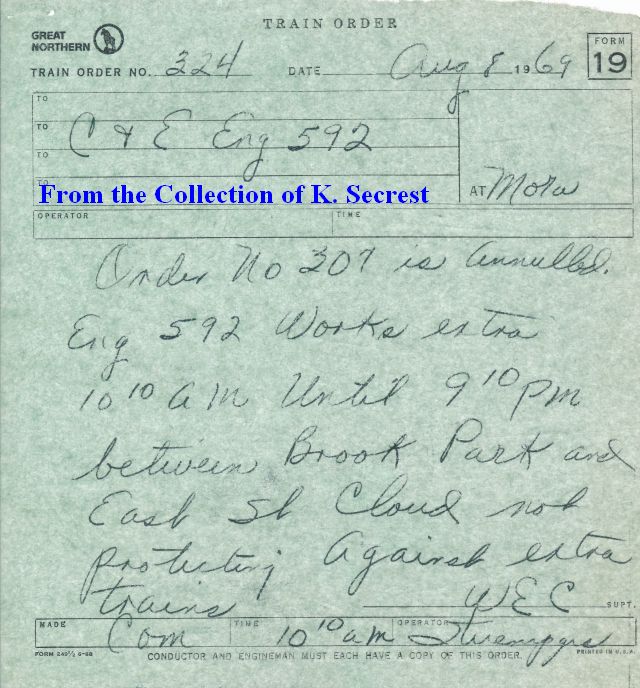 TRAIN ORDER
GREAT NORTHERN
FORM 19
TRAIN ORDER NO. 324 DATE Aug 8 1969
TO
TO C & E Eng 592
TO
TO
From the Collection of K. Secrest
AT Mora
OPERATOR TIME
Order No 307 is annulled.
Eng 592 Works extra
10 10 AM Until 9 10 PM
between Brook Park and
East St Cloud not
protecting Against extra
trains
WEC SUPT.
MADE Com TIME 10 10 am OPERATOR
FORM 249½ 6-68 CONDUCTOR AND ENGINEMAN MUST EACH HAVE A COPY OF THIS ORDER. PRINTED IN U.S.A.